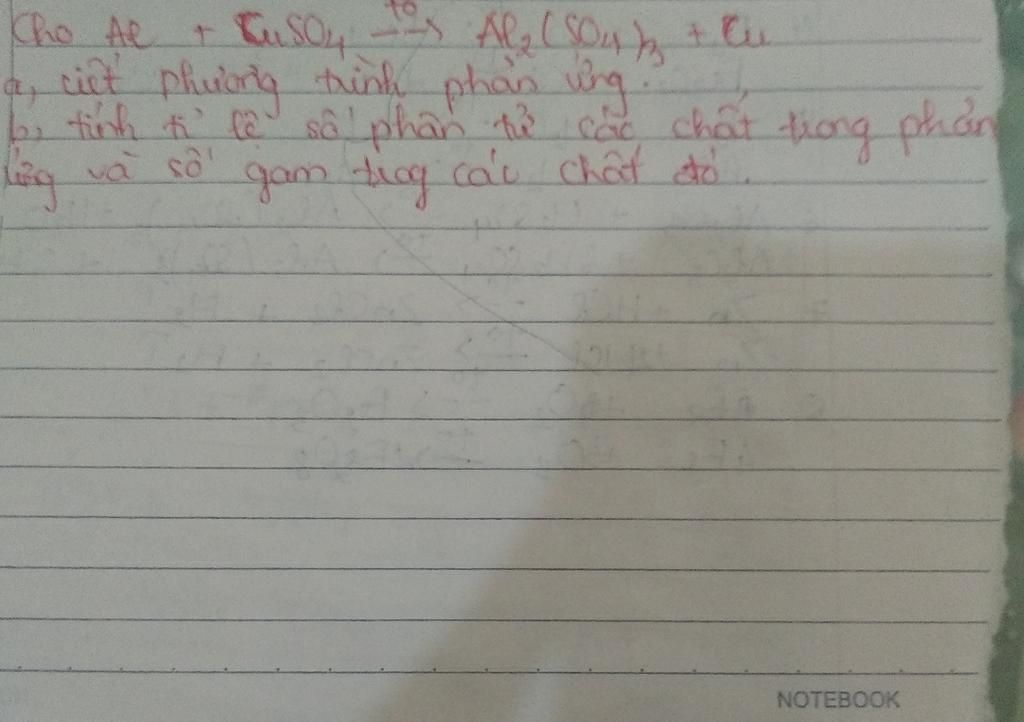 Cho Al + CuSO4 t0→ Al2(SO4)3 + Cu
a, viết phương trình phản ứng.
b, tính tỉ lệ số phân tử các chất trong phản
ứng và số gam trog các chất đó.
NOTEBOOK